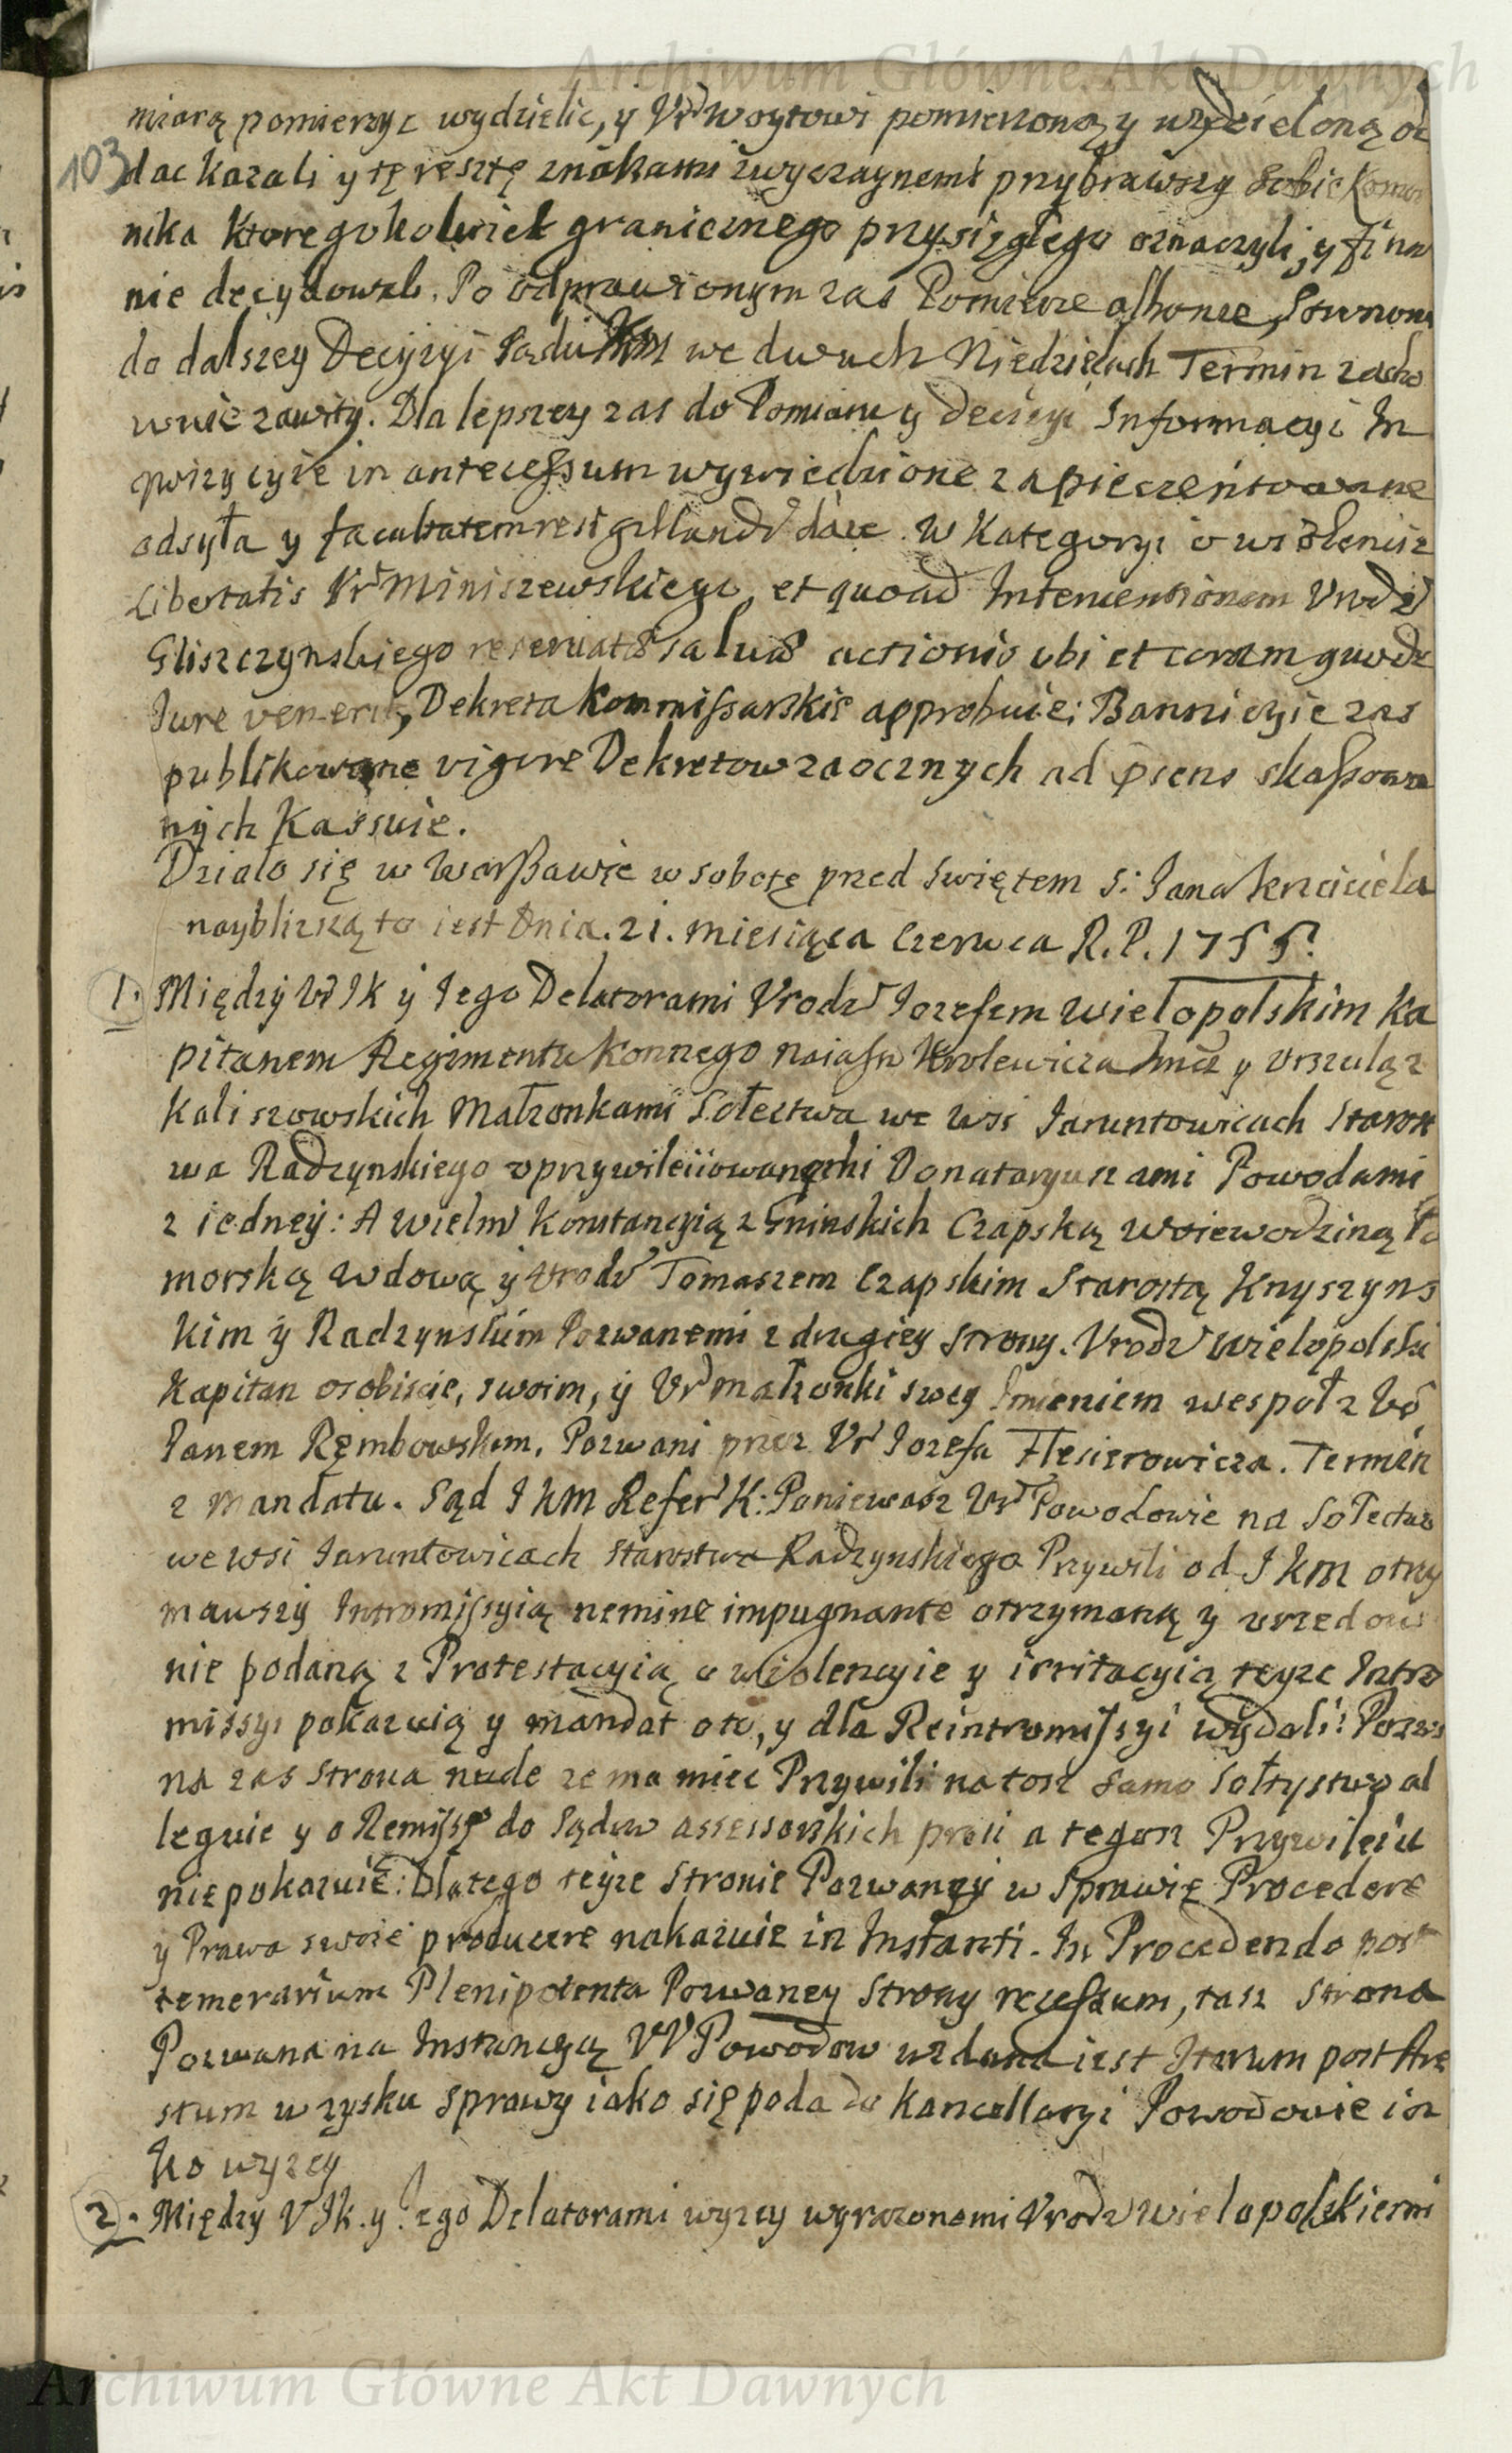 Archiwum Główne Akt Dawnych
miarą pomierzyc wydzielic, y Vr Woytowi pomierzoną y wydzieloną od
103
dac kazali y tę resztę znakami zwyczaynemi przybrawszy sobie Komor
nika ktoregokolwiek granicznego przysięgłego oznaczyli, y fina
nie decydowali. Po odprawionym zas Pomiarze Stronom
do dalszey Decyzyi Sądu we dwuch Niedzielach Termin zacho
wuie zawity. Dla lepszey zas do Pomiaru y decyzyi Informacyi In
quizycyie in antecessum wywiedzione zapieczentowane
odsyła y facultatem resigillandi daie. W Kategoryi o wiolencię
Libertatis Vr Miniszewskiego, et quoad Intencensionem Vrodz
Gliszczynskiego reservata salua actionis ubi et coram quo de
Jure venerit, Dekreta Kommissarskie approbuie; Bannicyie zas
publikowane vigore Dekretow zaocznych ad psens skassowa
nych Kassuie.
Działo się w Warszawie w sobotę przed Swiętem S: Jana Krzciciela
naybliższą to iest Dnia. 21. Miesiąca Czerwca R. P. 1755.
1. Między W IK y Jego Delatorami Vrodz Jozefem Wielopolskim Ka
pitanem Regimentu Konnego naiasn Krolewicza Imci y Vrszulą z
Kaliszowskich Małzonkami Sołectwa we wsi Jaruntowicach Starost
wa Radzynskiego vprzywileiowanemi Donataryuszami Powodami
z iedney: A Wielm Konstancyią z Gninskich Czapską Woiewodziną Po
morską Wdową y Vrodz Tomaszem Czapskim Starostą Knyszyns
kim y Radzynskim Pozwanemi z drugiey Strony. Vrodz Wielopolski
Kapitan osobiscie, swoim, y Vr Małzonki swey Imieniem wespoł z Vr
Janem Rembowskim, Pozwani przez Vr Jozefa Flesierowicza. Termin
z Mandatu. Sąd J K M Refer K: Poniewasz Vr Powodowie na Sołectwo
we wsi Jaruntowicach Starostwa Radzynskiego Przywili od J K M otrzy
mawszy Intromissyią nemine impugnante otrzymaną y vrzedow
nie podaną z Protestacyią o wiolencyie y irritacyią teyze Intro
missyi pokazuią y mandat oto, y dla Reintromissyi wydali: Pozwa
na zas Strona nude ze ma miec Przywili na tosz samo Sołtystwo al
leguie y o Remissę do Sądow assessorskich prosi a tegosz Przywileiu
niepokazuie: Dlatego teyze Stronie Pozwaney w Sprawie Procedere
y Prawa swoie producere nakazuie in Instanti. In Procedendo post
temerarium Plenipotenta Pozwaney Strony recessum, tasz Strona
Pozwana na Instancyą VV Powodow wzdana iest Iterum post Are
stum w zysku Sprawy iako się poda do Kancellaryi Powodowie ia
ko wyzey
2. Między V Jk. y Jego Delatorami wyzey wyrazonemi Vrodz Wielopolskiemi
Archiwum Główne Akt Dawnych